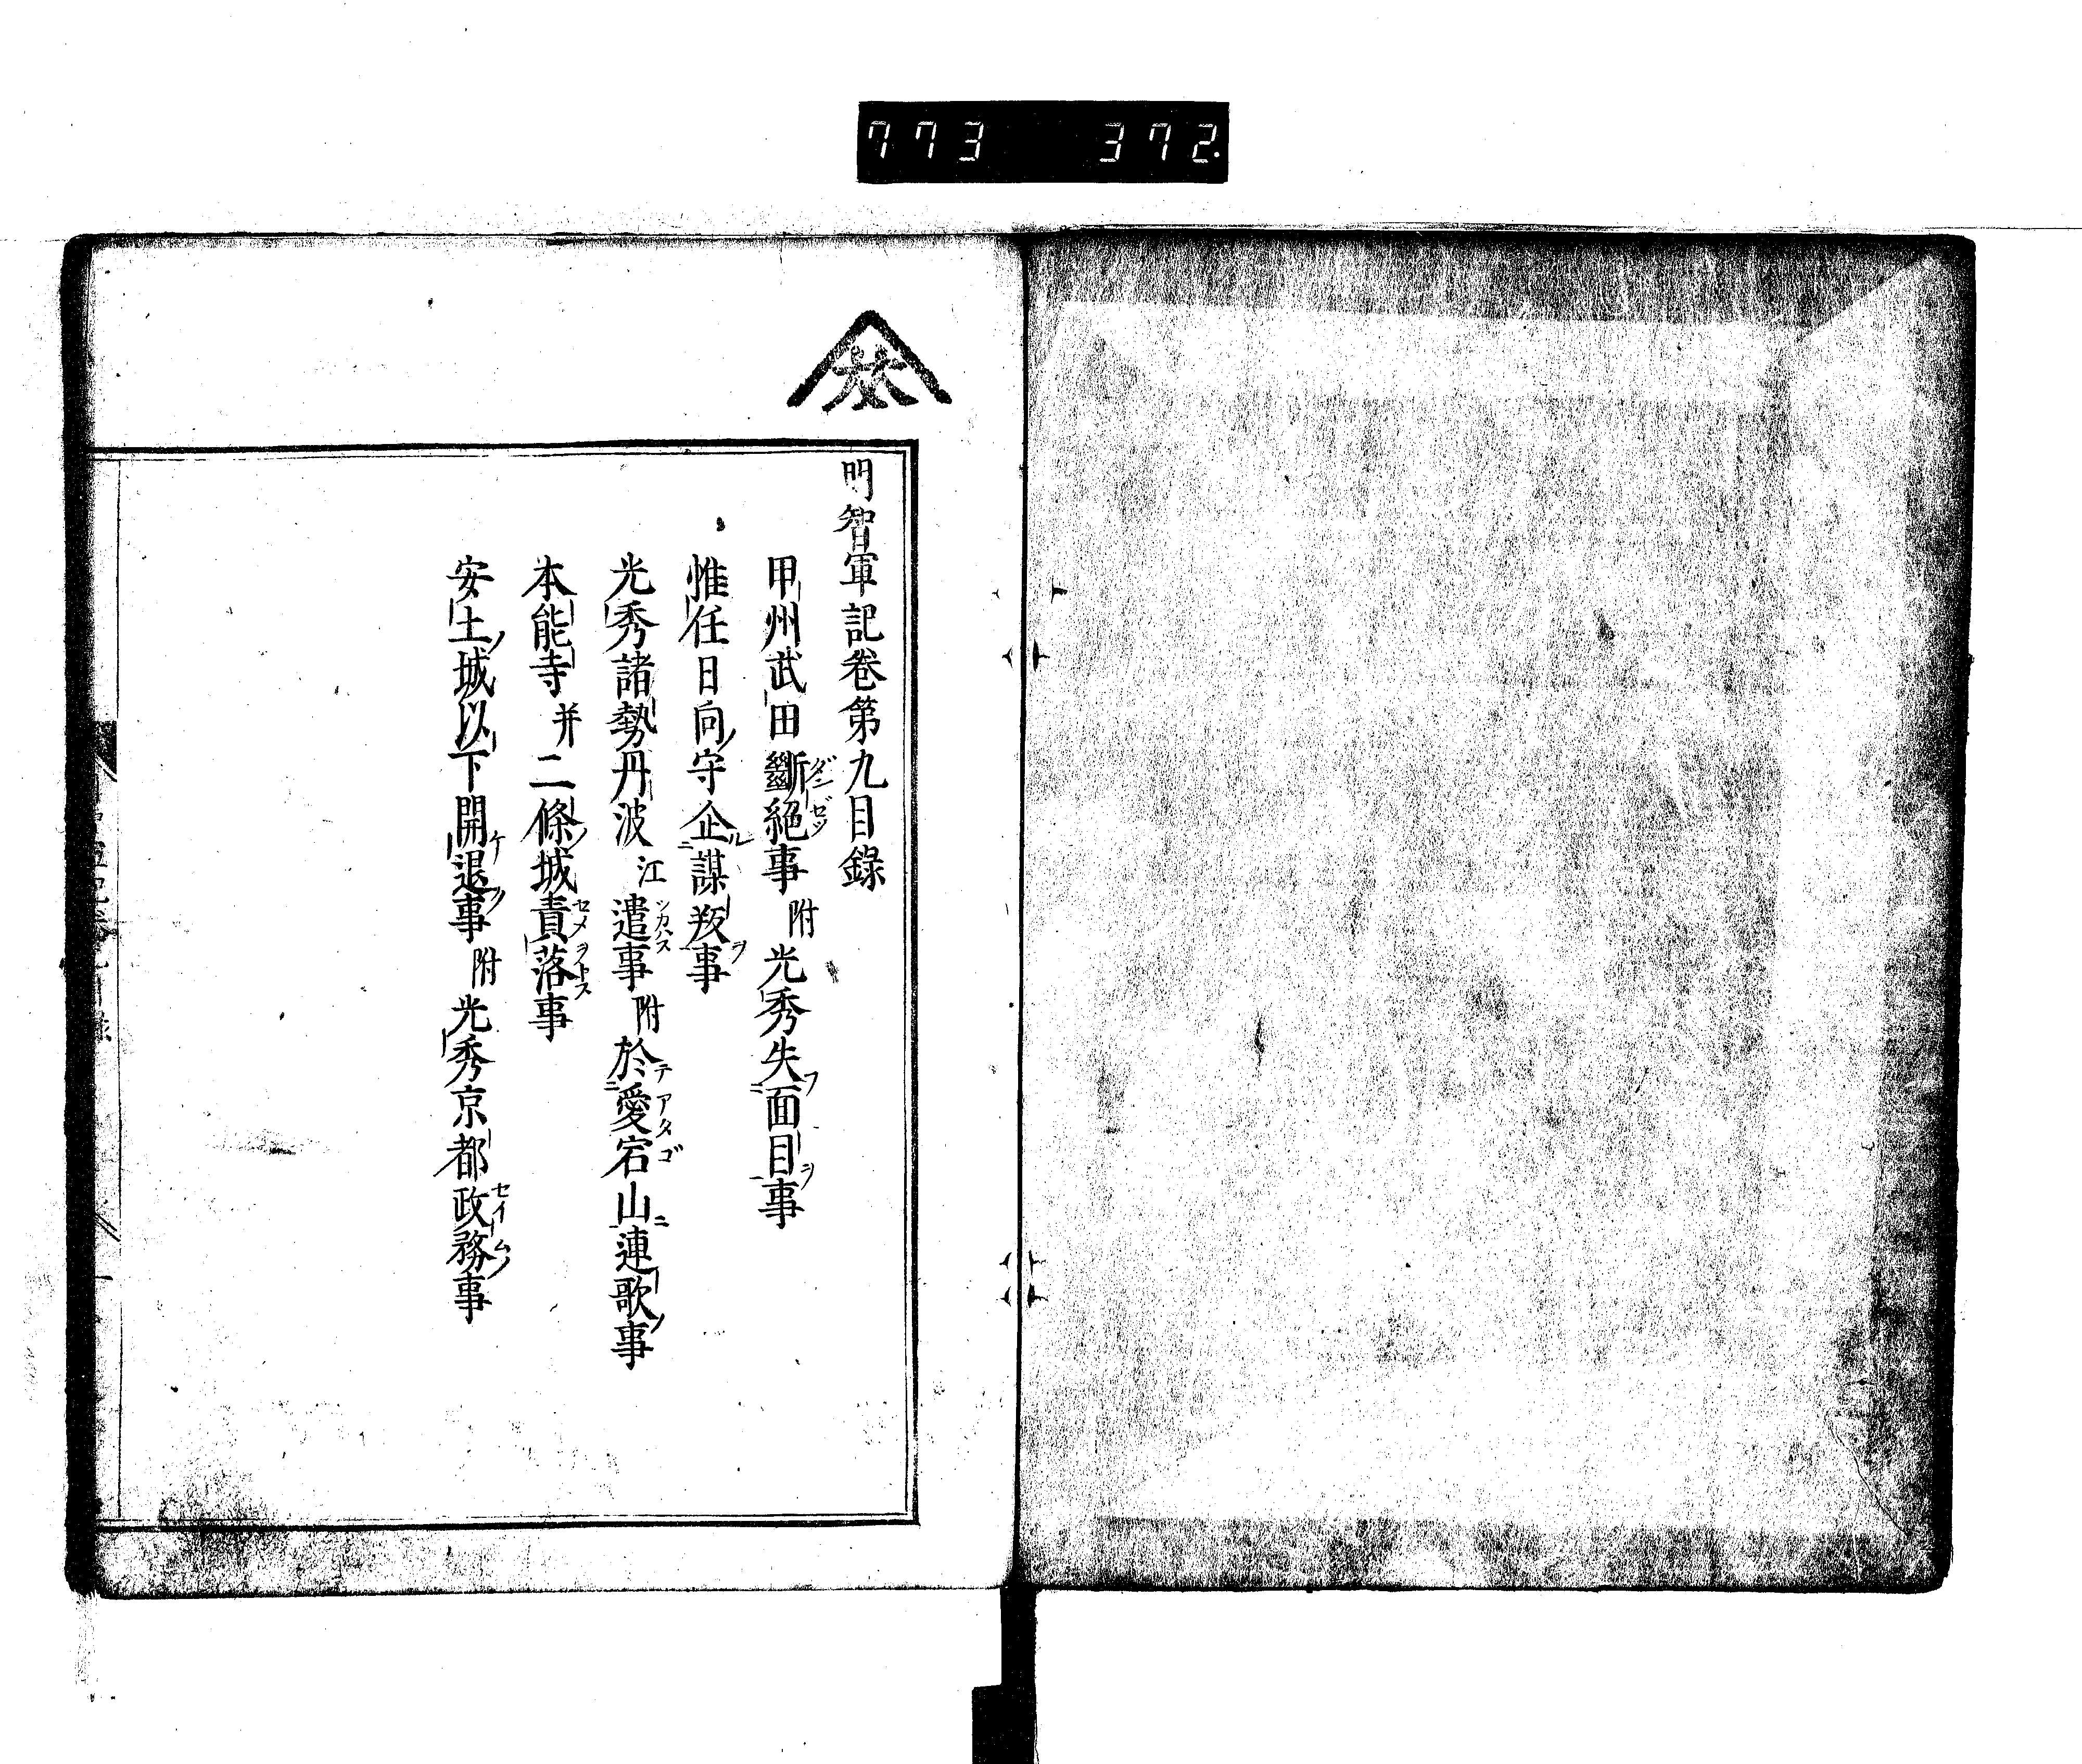 773 372
明智軍記卷第九目錄
甲州武田斷絕事附光秀失面目事
惟任日向守企謀叛事
光秀諸勢丹波江遣事附於愛宕山連歌事
本能寺并二條城責落事
安土城以下開退事附光秀京都政務事